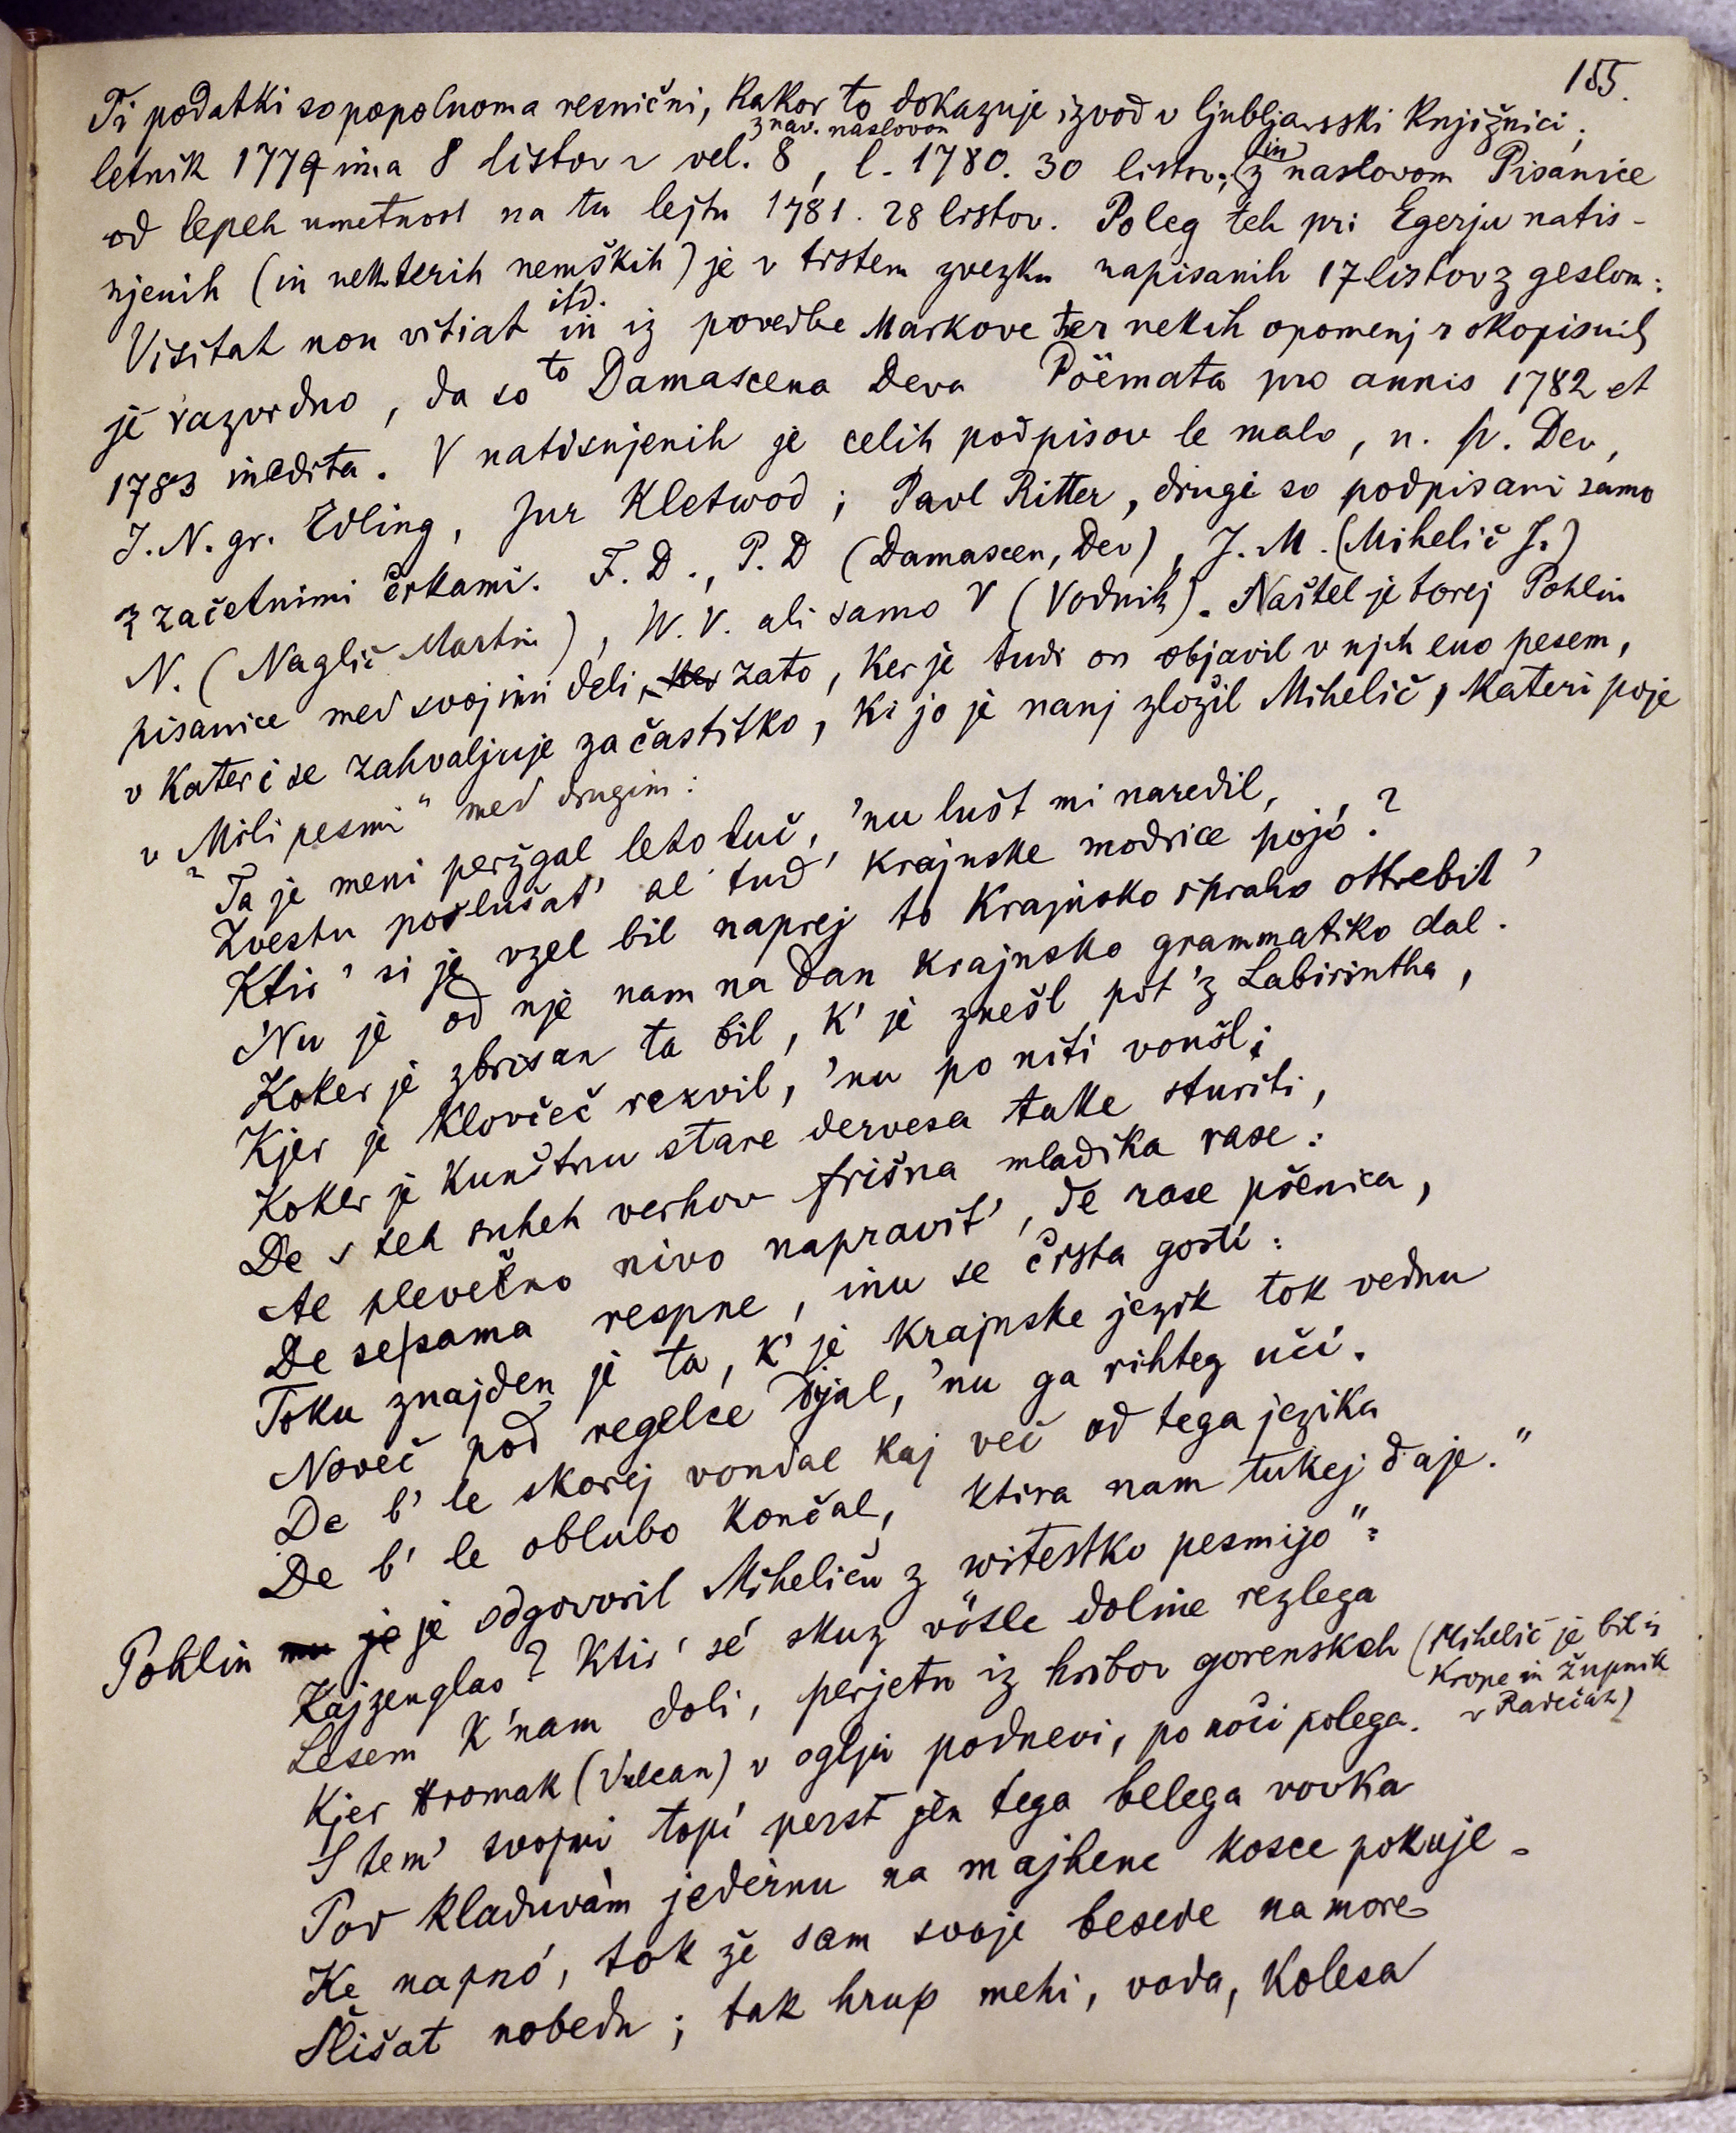 155.
Ti podatki so popolnoma resnični, kakor to dokazuje izvod v ljubljanski knjižnici;
z nav. naslovom
letnik 1779 ima 8 listov v vel. 8, l. 1780. 30 listov; (in z naslovom Pisanice
od lepeh umetnost na tu lejtu 1781. 28 listov. Poleg teh pri Egerju natis-
njenih (in nekterih nemških) je v tistem zvezku napisanih 17 listov z geslom:
Visitat non vitiat itd. in iz povedbe Markove ter nekih opomenj rokopisnih
je razvidno, da so to Damascena Deva Pöemata pro annis 1782 et
1783 inedita. V natisnjenih je celih podpisov le malo, n. pr. Dev,
J. N. gr. Edling, Jur Kletwod; Pavl Ritter, drugi so podpisani samo
z začetnimi črkami. F. D., P. D (Damascen, Dev), J. M. (Mihelič J.)
N. (Naglič Martin), W. V. ali samo V (Vodnik). Naštel je torej Pohlin
pisanice med svojimi deli, ker zato, ker je tudi on objavil v njih eno pesem,
v kateri se zahvaljuje za častitko, ki jo je nanj zložil Mihelič, kateri poje
v "Mili pesmi" med drugim:
"Ta je meni peržgal leto luč, 'nu lušt mi naredil,
Zvestu poslušat' al' tud' krajnske modrice pojó?
Ktir' si je vzel bil naprej to krajnsko spraho ottrebit'
'Nu je od nje nam na dan krajnsko grammatiko dal.
Koker je zbrisan ta bil, k' je znešl pót 'z Labirintha,
Kjer je klovčeč rezvil, 'nu po niti vonšl;
Koker je kunštnu stare dervesa take sturiti,
De s teh suheh verhov frišna mladika rase:
Al plevečno nivo napravit', de rase pšenica,
De se sama respne, inu se črsta gostí:
Toku znajden je ta, k' je krajnske jezik tok vednu
Noveč pod regelce djal, 'nu ga rihteg učí.
De b' le skorej vondal kaj več od tega jezika
De b' le oblubo končal, ktira nam tukej daje."
Pohlin mu je je odgovoril Miheliču z "witestko pesmijo":
Kajzenglas? ktir' sé skuz vötle doline rezlega
Lesem k'nam doli, perjetu iz hribov gorenskeh (Mihelič je bil iz
Krope in župnik
v Radečah)
Kjer Hromak (Vulcan) v oglju podnevi, po noči polega.
S tem' svojmi topí perst jèn tega belega vovka
Pod kladuvàm jedèrnu na majhene kosce pokuje.
Ke napnó, tok že sam svoje besede na more
Slišat nobedn; tak hrup mehi, voda, kolesa